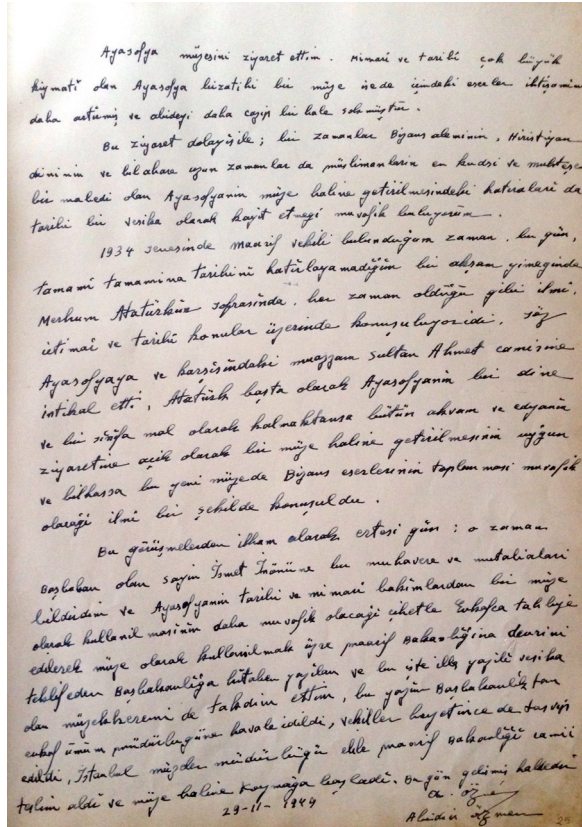 Ayasofya müzesini ziyaret ettim. Mimari ve tarihî çok büyük
kıymeti olan Ayasofya bizatihi bir müze isede içindeki eserler ihtişamını
daha artırmış ve abideyi daha cazip bir hale sokmuştur.
Bu ziyaret dolayısile; bir zamanlar Bizans aleminin, Hiristiyan
dininin ve bilahare uzun zamanlar da müslimanların en kudsi ve muhteşem
bir mabedi olan Ayasofyanın müze haline getirilmesindeki hatıraları da
tarihî bir vesika olarak kayıt etmeği muvafık buluyorum.
1934 senesinde maarif vekili bulunduğum zaman, bu gün,
tamamı tamamına tarihini hatırlayamadığım bir akşam yemeğinde
Merhum Atatürkün sofrasında, her zaman olduğu gibi ilmî,
içtimaî ve tarihî konular üzerinde konuşuluyor idi. Söz
Ayasofyaya ve karşısındaki muazzam Sultan Ahmet camisine
intikal etti, Atatürk başta olarak Ayasofyanın bir dine
ve bir sınıfa mal olarak kalmaktansa bütün akvam ve edyanın
ziyaretine açık olarak bir müze haline getirilmesinin uygun
ve bilhassa bu yeni müzede Bizans eserlerinin toplanması muvafık
olacağı ilmî bir şekilde konuşuldu.
Bu görüşmelerden ilham alarak ertesi gün: o zaman
Başbakan olan sayın İsmet İnönüne bu muhavere ve mutaliaları
bildirdim ve Ayasofyanın tarihi ve mimari bakımlardan bir müze
olarak kullanılmasının daha muvafık olacağı cihetle Evkafca tahliye
edilerek müze olarak kullanılmak üzre maarif Bakanlığına devrini
teklifeden Başbakanlığa hitaben yazılan ve bu işte ilk yazılı vesika
olan müzekkeremi de takdim ettim, bu yazım Başbakanlıktan
evkaf umum müdürlüğüne havale edildi, vekiller heyetince de tasvip
edildi, İstanbul müzeler müdürlüğü elile maarif Bakanlığı camii
teslim aldı ve müze haline koymağa başladı. Bu gün gelinmiş haldedir
29-11-1949 A. Özmen
Abidin Özmen
25